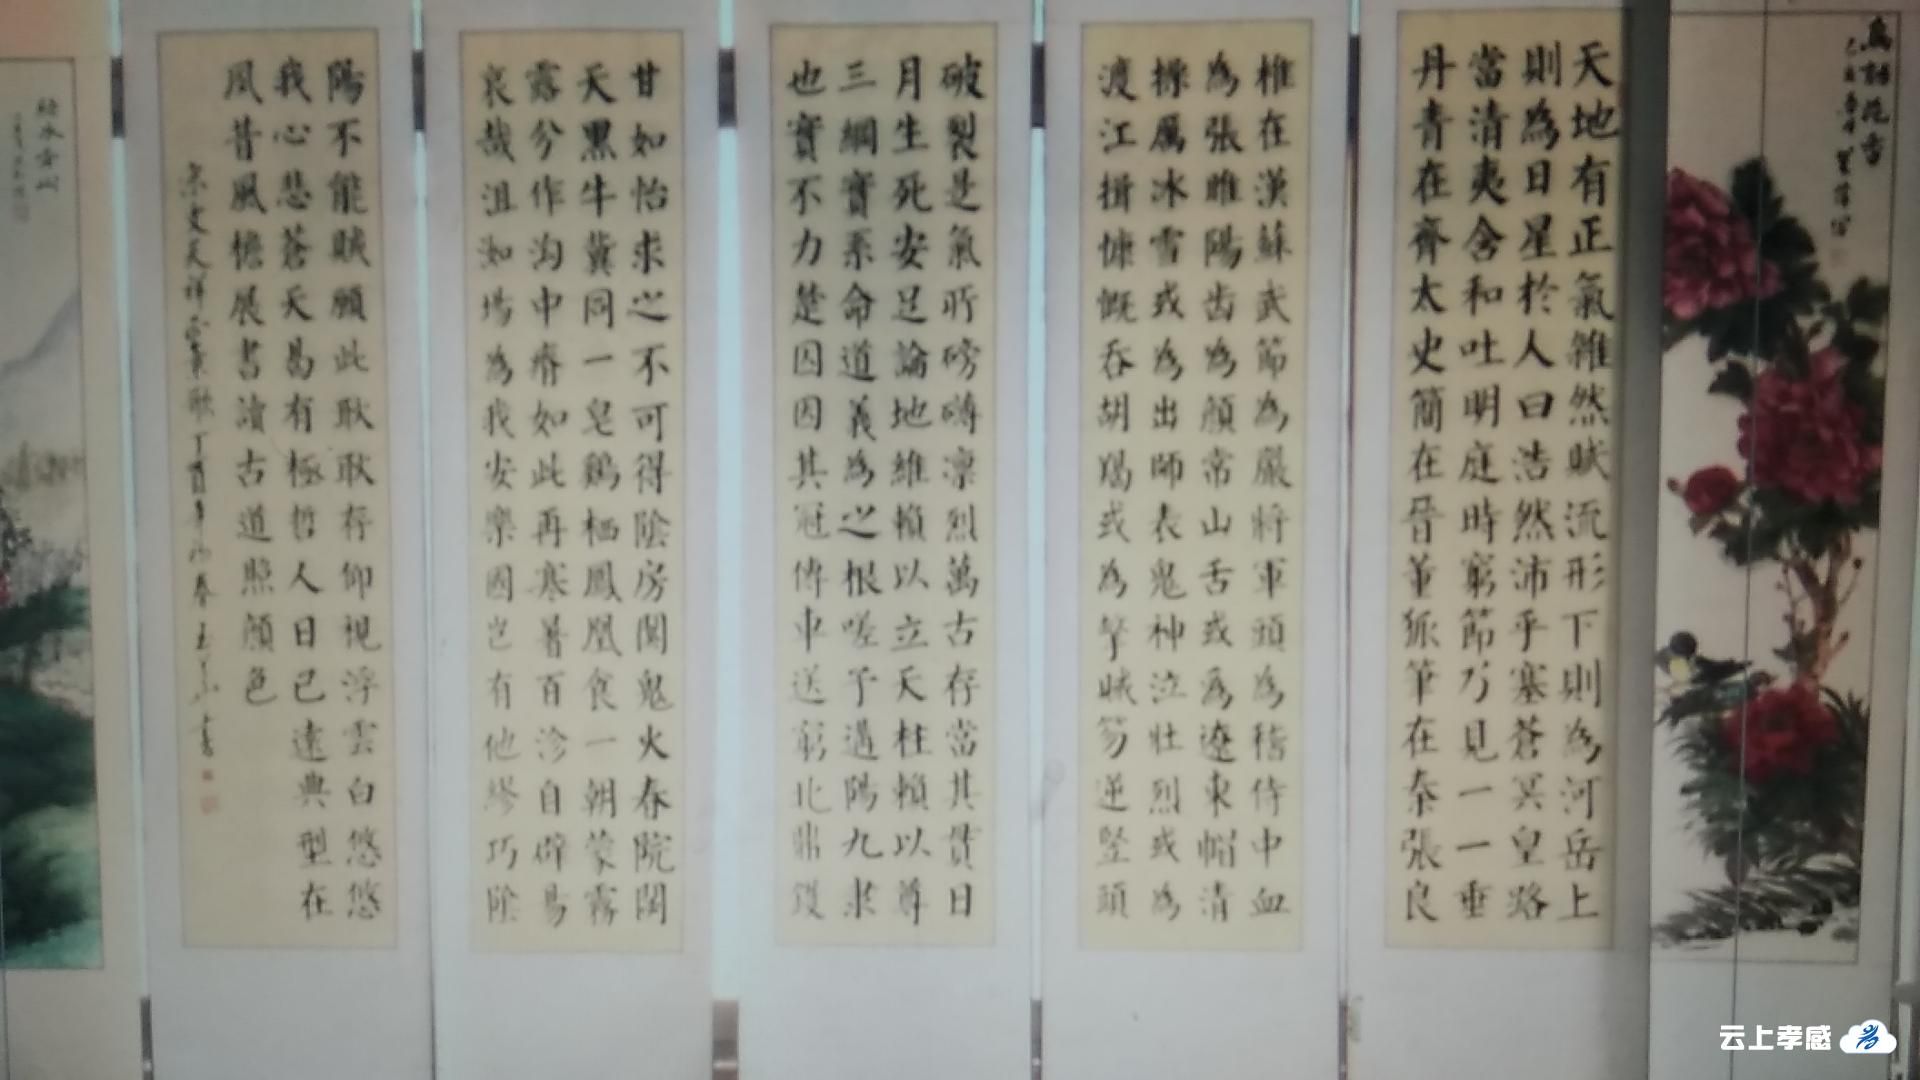 鳥語花香
天地有正氣雜然賦流形下則為河岳上
則為日星於人曰浩然沛乎塞蒼冥皇路
當清夷含和吐明庭時窮節乃見一一垂
丹青在齊太史簡在晉董狐筆在秦張良
椎在漢蘇武節為嚴將軍頭為稽侍中血
為張睢陽齿為顏常山舌或為遼東帽清
操厲冰雪或為出師表鬼神泣壯烈或為
渡江楫慷慨吞胡羯或為擊賊笏逆竪頭
破裂是氣所磅礴凛烈萬古存當其貫日
月生死安足論地維賴以立天柱賴以尊
三綱實系命道義為之根嗟予遘陽九隶
也實不力楚囚因其冠傳車送窮北鼎鑊
甘如怡求之不可得陰房闃鬼火春院閟
天黑牛冀同一皂鷄栖鳳凰食一朝蒙霧
露兮作沟中瘠如此再寒暑百沴自辟易
哀哉沮洳場為我安樂國岂有他繆巧陰
陽不能賊願此耿耿存仰視浮雲白悠悠
我心悲蒼天曷有極哲人日已遠典型在
夙昔風檐展書讀古道照顏色
宋文天祥正氣歌丁酉年初春 書
绿水青山
云上孝感